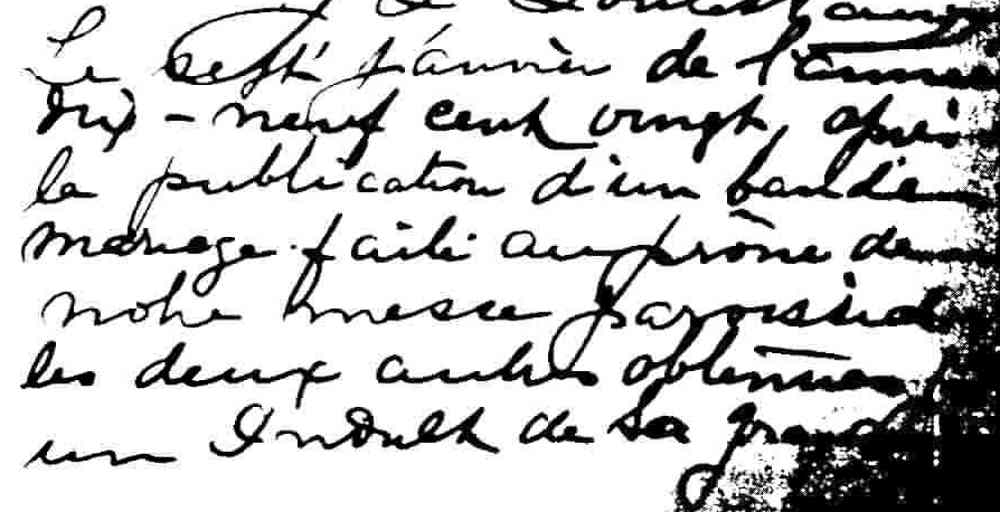 Le sept janvier de l'année
dix-neuf cent vingt, après
la publication d'un ban de
mariage faite au prône de
notre messe paroissial
les deux autres obtenues
un Indult de Sa grand